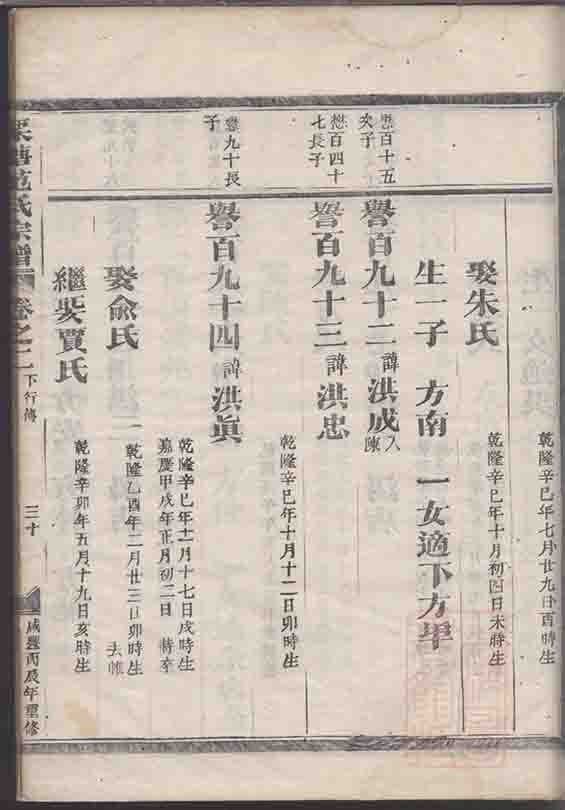 乾隆辛巳年七月廿九日酉時生
娶朱氏
乾隆辛巳年十月初四日未時生
生一子 方南 一女適下方畢
懋百十五次子
譽百九十二 諱洪成 入陳
懋百四十七長子
譽百九十三 諱洪忠
乾隆辛巳年十月十二日卯時生
懋九十長子
譽百九十四 諱洪眞
乾隆辛巳年十一月十七日戌時生
嘉慶甲戌年正月初二日 時卒
娶俞氏
乾隆乙酉年二月廿三日卯時生 去帷
繼娶賈氏
乾隆辛卯年五月十九日亥時生
范氏宗譜 卷之二 下行傳 三十 咸豐丙辰年重修